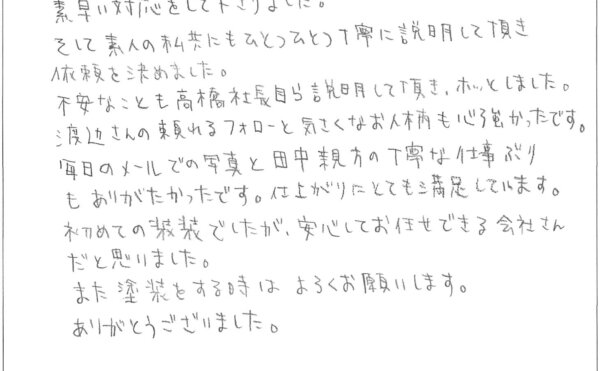 素早い対応をして下さりました。
そして素人の私共にもひとつひとつ丁寧に説明して頂き
依頼を決めました。
不安なことも高橋社長自ら説明して頂き、ホッとしました。
渡辺さんの頼れるフォローと気さくなお人柄も心強かったです。
毎日のメールでの写真と田中親方の丁寧な仕事ぶり
もありがたかったです。仕上がりにとても満足しています。
初めての装装でしたが、安心してお任せできる会社さん
だと思いました。
また塗装をする時はよろしくお願いします。
ありがとうございました。